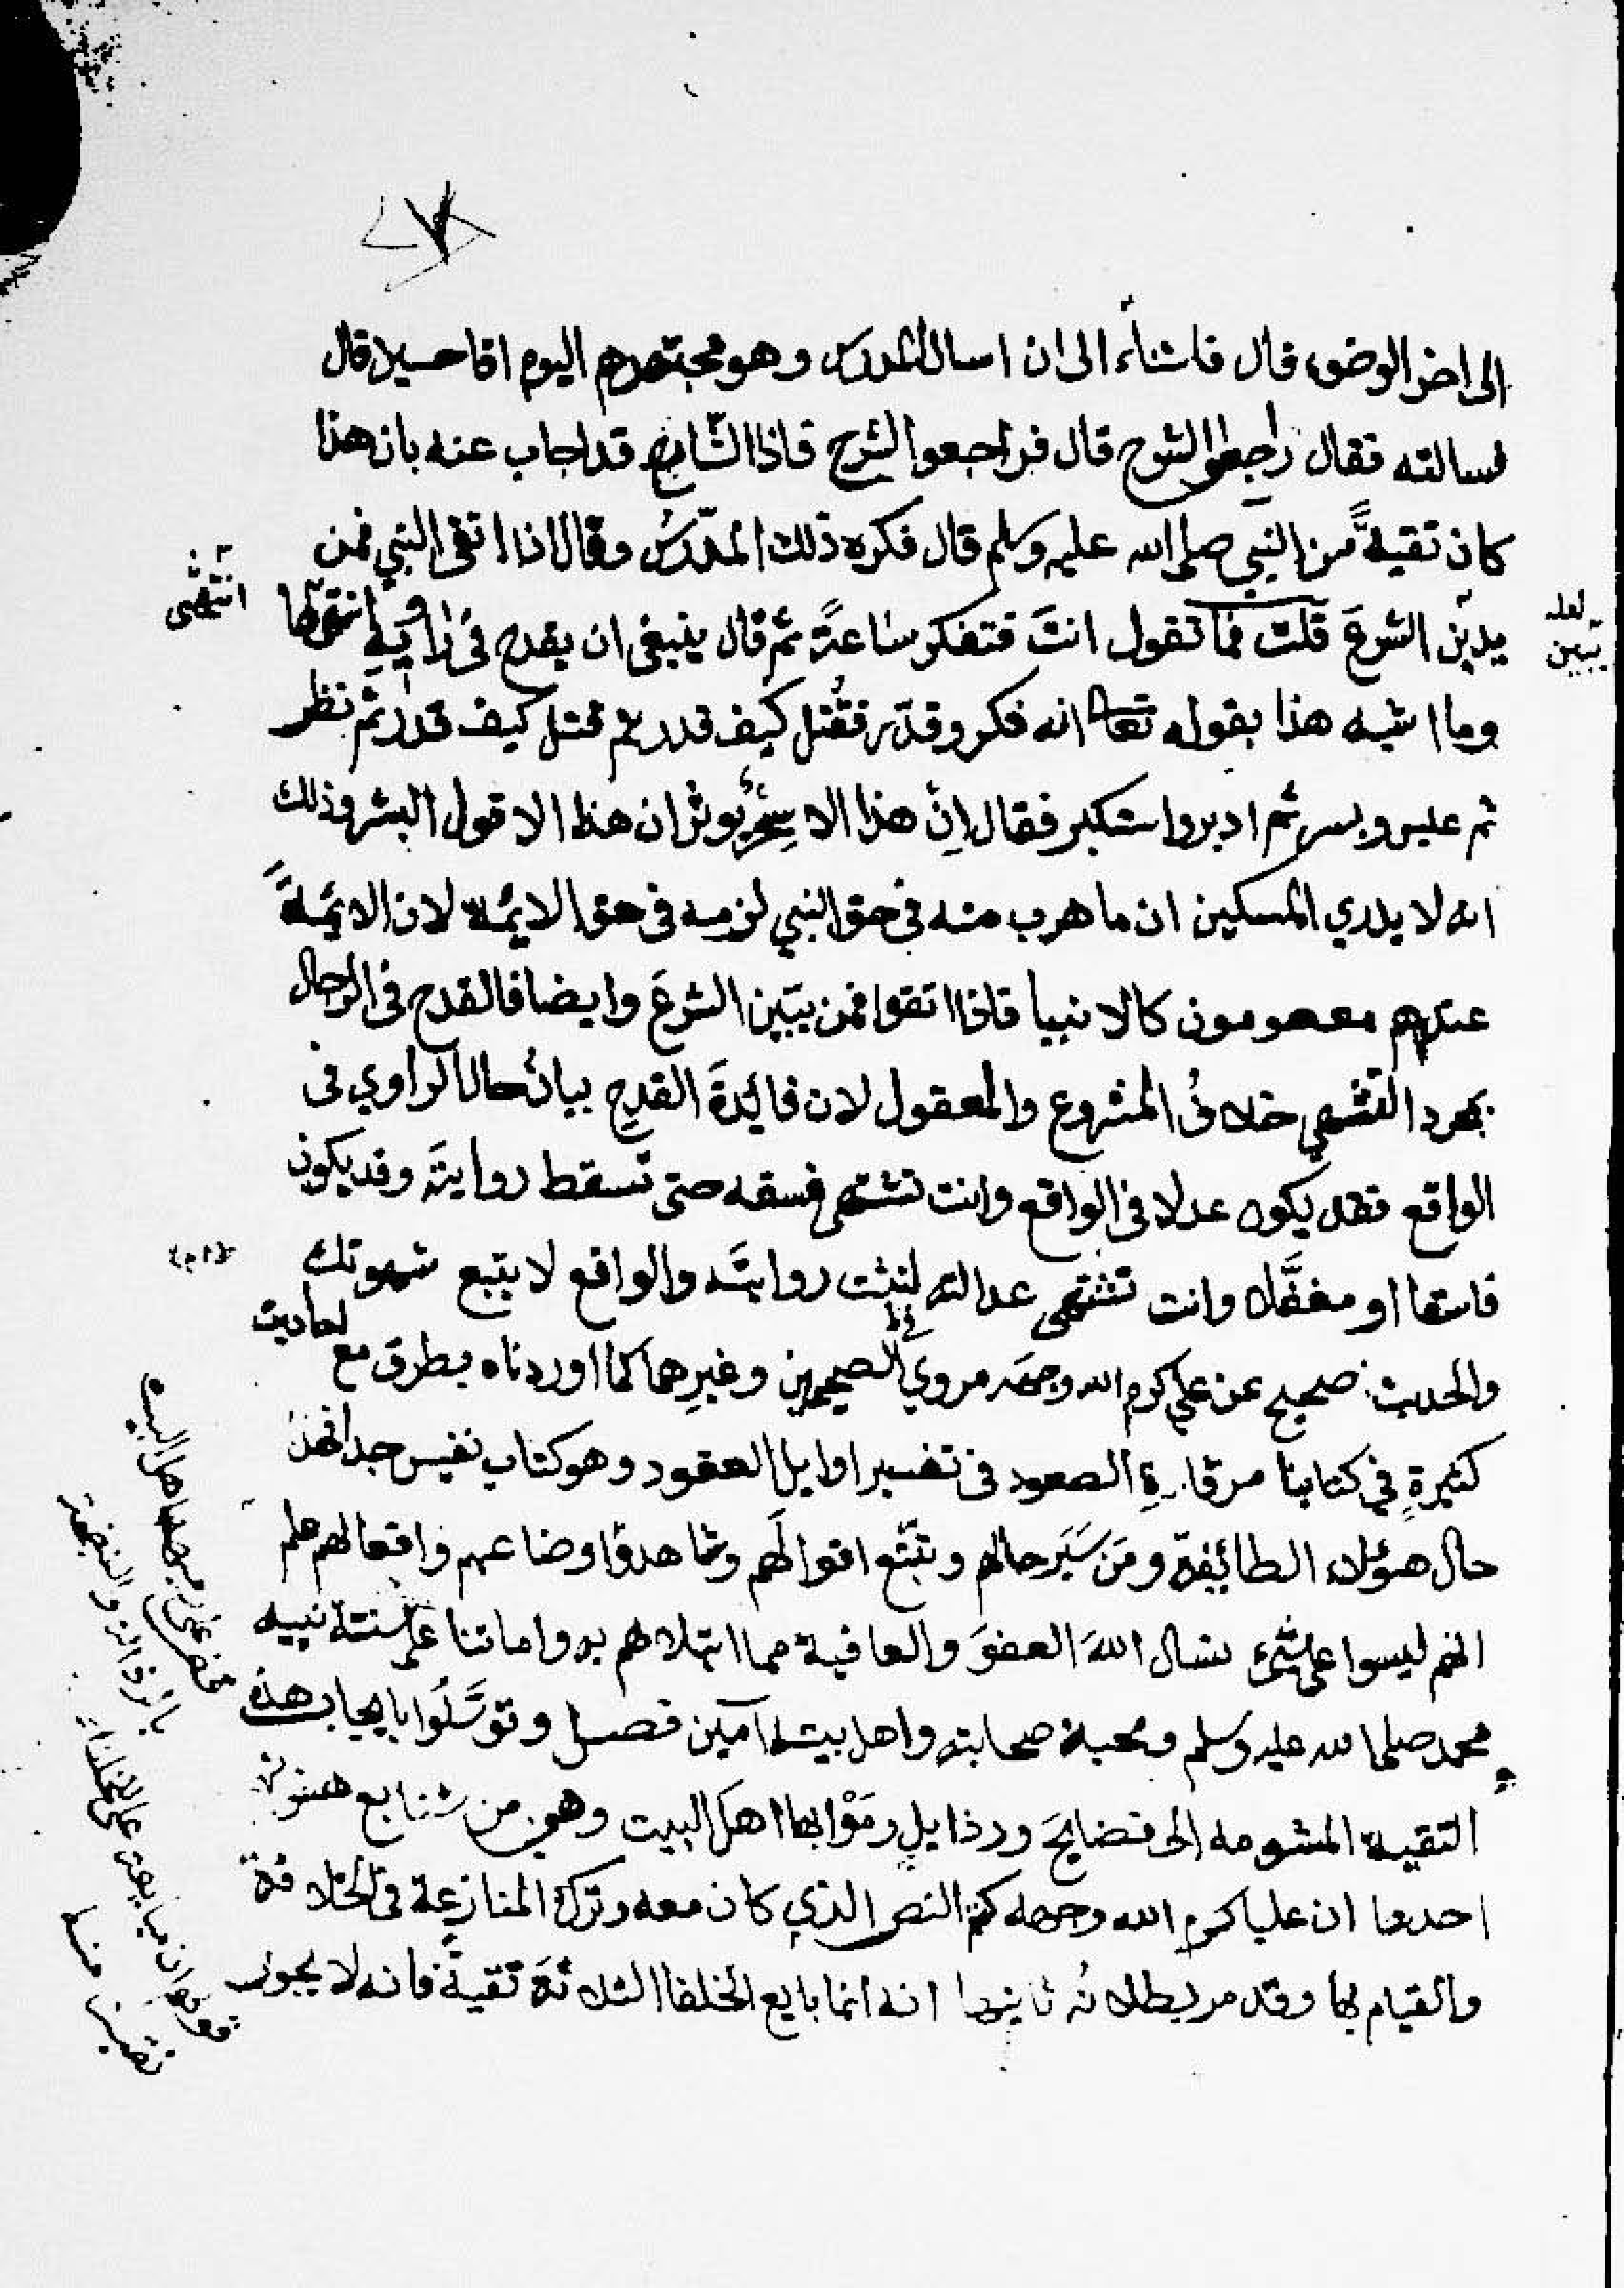 الى اخر الوضوء قال فاشار الى ان اسال المدرس وهو مجتهدهم اليوم اقا حسين قال
فسالته فقال راجعوا الشرح قال فراجعوا الشرح فاذا الشارح قد اجاب عنه بان هذا
كان تقيةً من النبي صلى الله عليه وسلم قال فكره ذلك المدّرسُ وقال اذا اتقى النبي فمن
يدين الشرعَ قلت فما تقول انتَ فتفكر ساعةً ثم قال ينبغي ان يقدح في راويه انتهى
لعله
يبين
انتهى
وما اشبه هذا بقوله تعالى انه فكر وقدّر فقُتل كيف قدر ثم قتل كيف قدر ثم نظر
ثم عبس وبسر ثم ادبر واستكبر فقال اِنْ هذا الا سِحْرٌ يوثر ان هذا الا قول البشر وذلك
انه لا يدري المسكين ان ما هرب منه في حق النبي لزمه في حق الايمة لان الايمةَ
عندهم معصومون كالانبيا فاذا اتقوا فمن يبّين الشرعَ وايضا فالقدح في الرجال
بمجرد التشهي خلافُ المشروع والمعقول لان فايدةَ القدحِ بيانُ حال الراوي في
الواقع فقد يكون عدلا في الواقع وانت تشتهي فسقه حتى تسقط روايتَه وقد يكون
فاسقا او مغفَّلا وانت تشتهي عدالته لتثبت روايتَه والواقع لا يتبع شهوتك
والحديث صحيح عن علي كرم الله وجهَه مروي في الصحيحين وغيرِهما كما اوردناه بطرق مع احاديث
كثيرةٍ في كتابنا مرقاةِ الصعود في تفسير اوايل العقود وهو كتاب نفيس جدا فهذا
حال هؤلاء الطائفة ومَن سَبَرَ حالهم وتتبّع اقوالَهم وشاهد اوضاعهم وافعالهم علم
انهم ليسوا على شيء نسال اللهَ العفوَ والعافية مما ابتلاهم به واماتنا على سُنة نبيه
محمد صلى الله عليه وسلم ومحبة صحابته واهل بيته آمين فصل وتوسَّلوا بايجاب هذه
التقية المشومه الى فضايحَ ورذايلٍ رمَوْا بها اهلَ البيت وهي من شنايع هفواتهم
احدها ان عليا كرم الله وجهه كتم النص الذي كان معه وترك المنازعة في الخلافة
والقيام بها وقد مر بطلانُه ثانيها انه انما بايع الخلفا الثلاثةَ تقيةً فانه لا يجوز